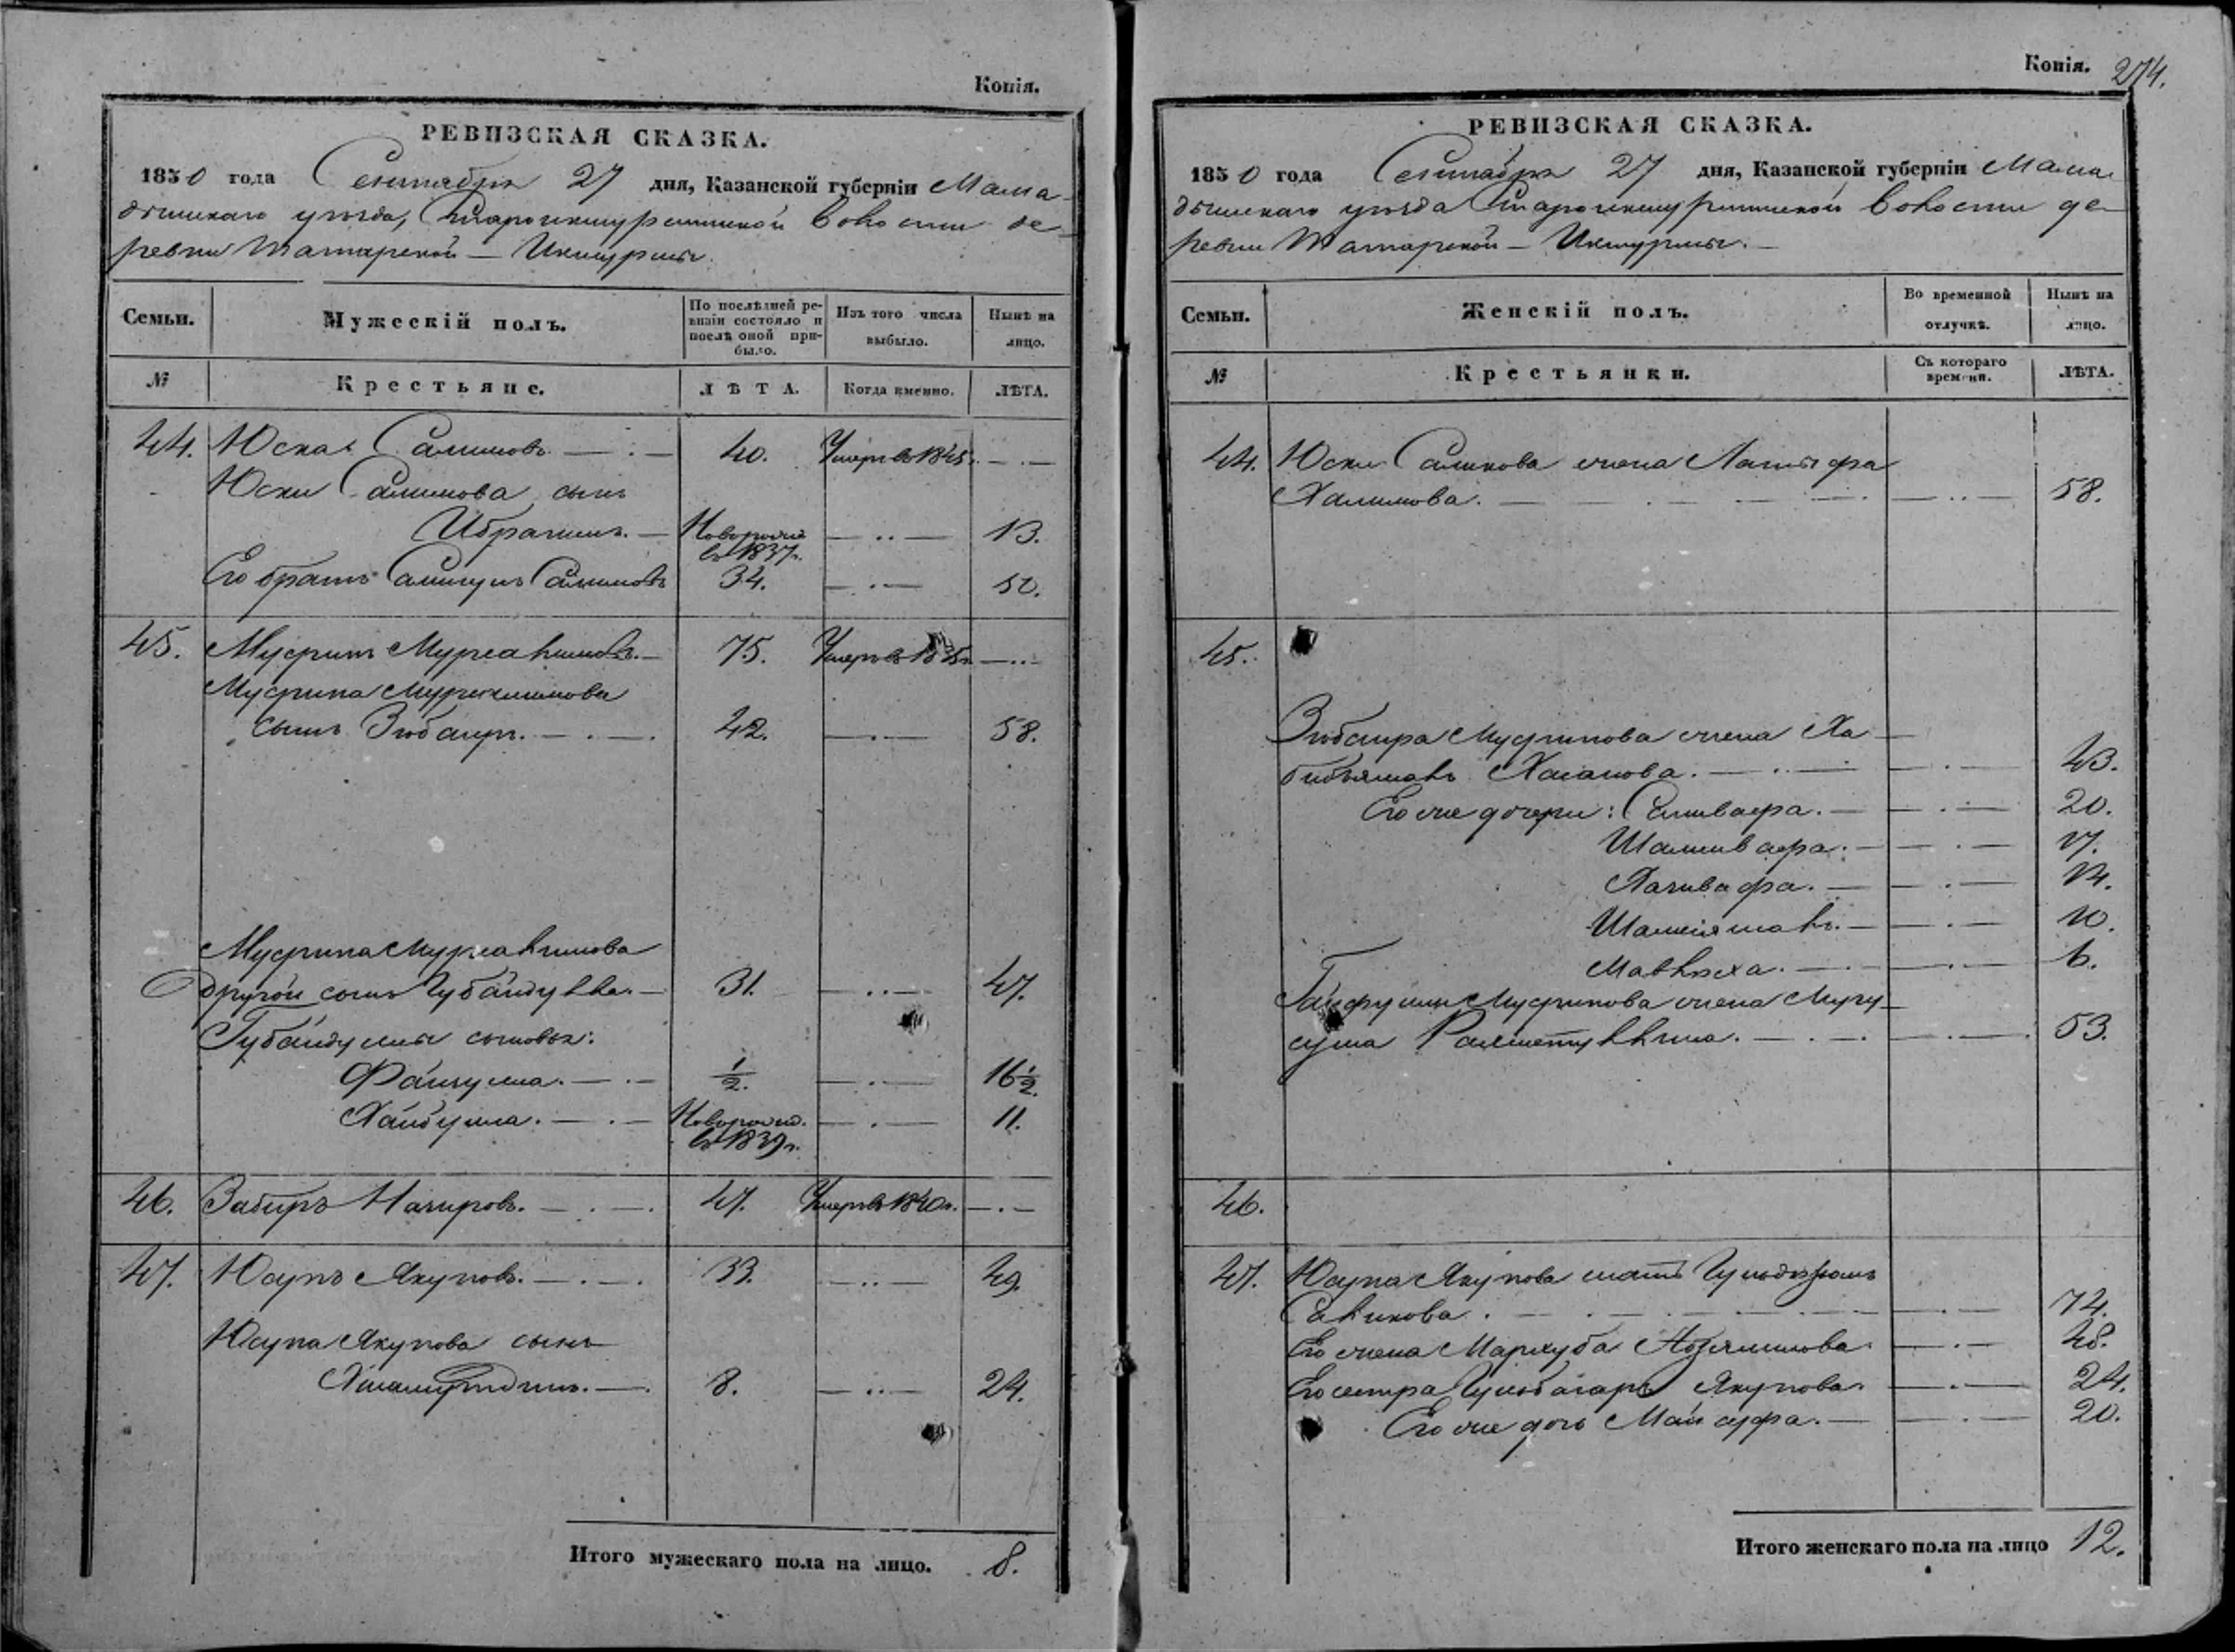 Копія.
РЕВИЗСКАЯ СКАЗКА.
1850 года Сентября 27 дня, Казанской губерніи Мама-
дышскаго уѣзда, Староикшурминской волости де-
ревни Татарской – Икшурмы.
Семьи. Мужескій полъ. По послѣдней ре-визіи состояло и послѣ оной при-было. Изъ того числа выбыло. Нынѣ на лицо.
№ Крестьяне. ЛѢТА. Когда именно. ЛѢТА.
44. Юска Салимовъ 40. Умеръ въ 1845г.
Юски Салимова сынъ
Ибрагимъ. Новорожд. въ 1837г. 13.
Его братъ Салимовъ 34. 50.
45. Мусринъ 75. Умеръ въ
Мусрина
сынъ Зюбаиръ. 42. 58.
Мусрина
другой сынъ Губайдулла. 31. 47.
Губайдуллы сыновья:
Файзулла. 1/2. 16 1/2.
Хайбулла. Новорожд. въ 1839г. 11.
46. Забиръ Назировъ. 47. Умеръ въ 1840г.
47. Юсупъ Якуповъ. 33. 49.
Юсупа Якупова сынъ
8. 24.
Итого мужескаго пола на лицо. 8.
Копія. 274.
РЕВИЗСКАЯ СКАЗКА.
1850 года Сентября 27 дня, Казанской губерніи Мама-
дышскаго уѣзда Староикшурминской волости де-
ревни Татарской – Икшурмы.
Семьи. Женскій полъ. Во временной отлучкѣ. Нынѣ на лицо.
№ Крестьянки. Съ котораго времени. ЛѢТА.
44. Юски Салимова жена Латыфа
Халимова. 58.
45.
Зюбаира Мусрипова жена Ха-
бибзямалъ Хасанова. 43.
Его же дочери: 20.
17.
14.
10.
6.
Мусрипова жена
53.
46.
47. Юсупа Якупова мать
74.
Его жена Мархуба 48.
Его сестра Якупова. 24.
Его же дочь 20.
Итого женскаго пола на лицо 12.